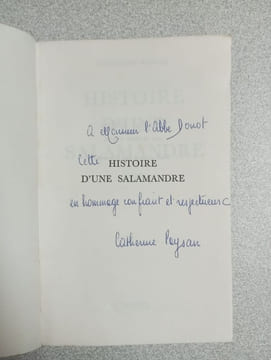 A Monsieur l'Abbé Donot
Cette
HISTOIRE
D'UNE SALAMANDRE
en hommage confiant et respectueux
Catherine Paysan